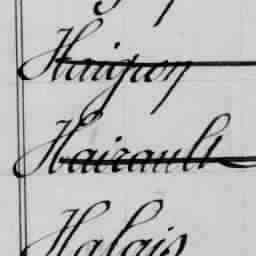 Haigron
Hairault
Halais